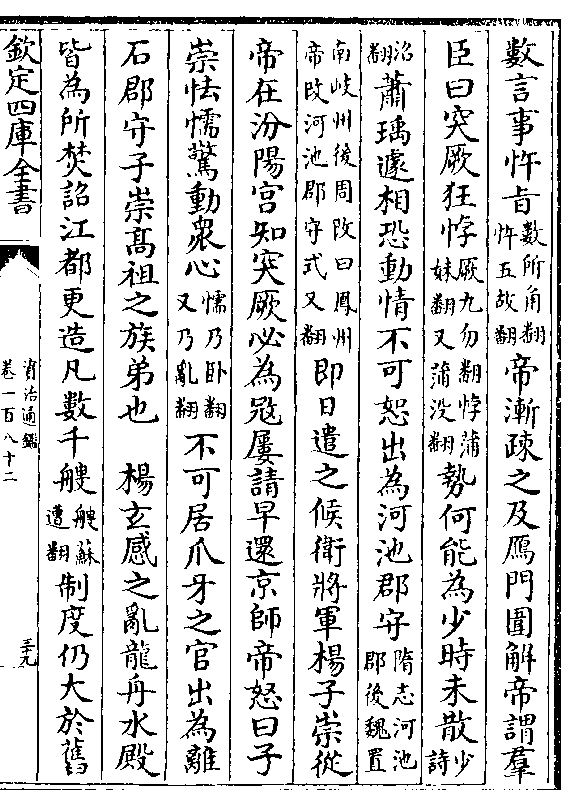 數言事忤旨數所角翻忤五故翻帝漸疎之及鴈門圍解帝謂羣
臣曰突厥狂悖厥九勿翻悖蒲妹翻又蒲没翻勢何能為少時未散少詩
沼翻蕭瑀遽相恐動情不可恕出為河池郡守隋志河池郡後魏置
南岐州後周改曰鳳州帝改河池郡守式又翻即日遣之候衛將軍楊子崇從
帝在汾陽宫知突厥必為宼屢請早還京師帝怒曰子
崇怯懦驚動衆心懦乃卧翻又乃亂翻不可居爪牙之官出為離
石郡守子崇髙祖之族弟也　楊玄感之亂龍舟水殿
皆為所焚詔江都更造凡數千艘艘蘇遭翻制度仍大於舊
欽定四庫全書
資治通鑑
卷一百八十二
三十九